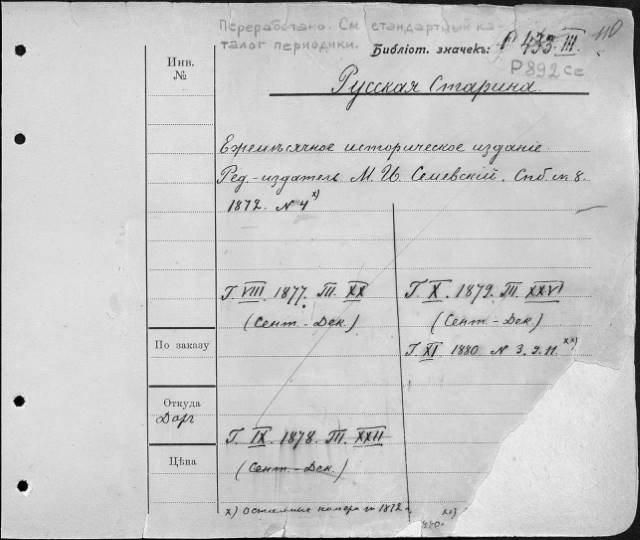 Переработано. См стандартный ка-
талог периодики.
Библіот. значекъ: Р 433. III. 110
Р892 се
Инв.
№
Русская Старина
Ежемѣсячное историческое изданіе.
Ред.-издатель М. И. Семевскій. Спб. м. 8.
1872. N 4 x)
Г. VIII. 1877. Т. XX
(Сент - Дек.)
Г. X. 1879. Т. XXVI
(Сент.- Дек.)
Г. XI 1880 N 3. 9. 11 xx)
По заказу
Откуда
Дар
Цѣна
Г. IX. 1878. Т. XXII
(Сент.- Дек.)
x) Остальные номера 1872